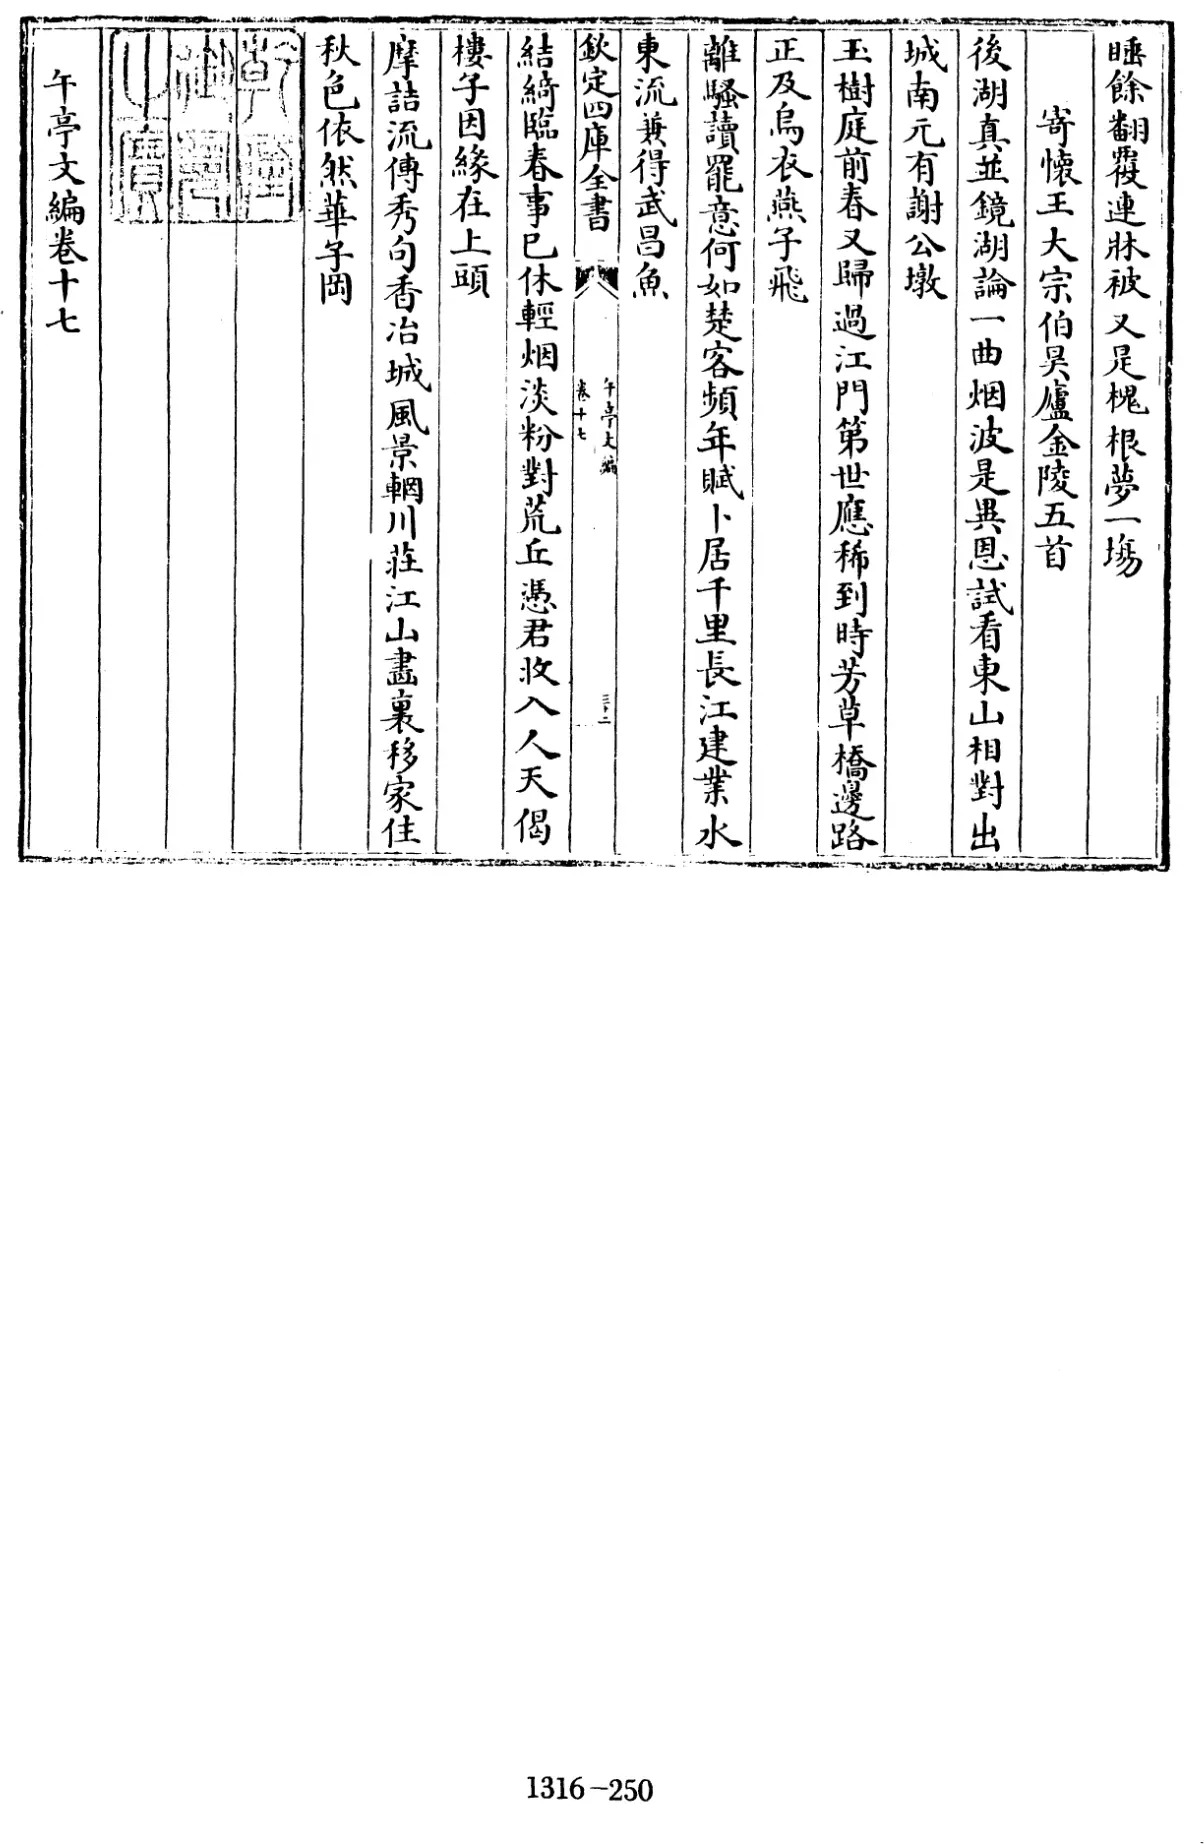 睡餘翻覆連牀被又是槐根夢一塲
寄懷王大宗伯昊廬金陵五首
後湖真並鏡湖論一曲烟波是異恩試看東山相對出
城南元有謝公墩
玉樹庭前春又歸過江門第世應稀到時芳草橋邊路
正及烏衣燕子飛
離騷讀罷意何如楚客頻年賦卜居千里長江建業水
東流兼得武昌魚
欽定四庫全書
午亭文編
卷十七
三十二
結綺臨春事已休輕烟淡粉對荒丘憑君收入人天偈
樓子因緣在上頭
摩詰流傳秀句香冶城風景輞川莊江山畫裏移家住
秋色依然華子岡
午亭文編卷十七
1316-250